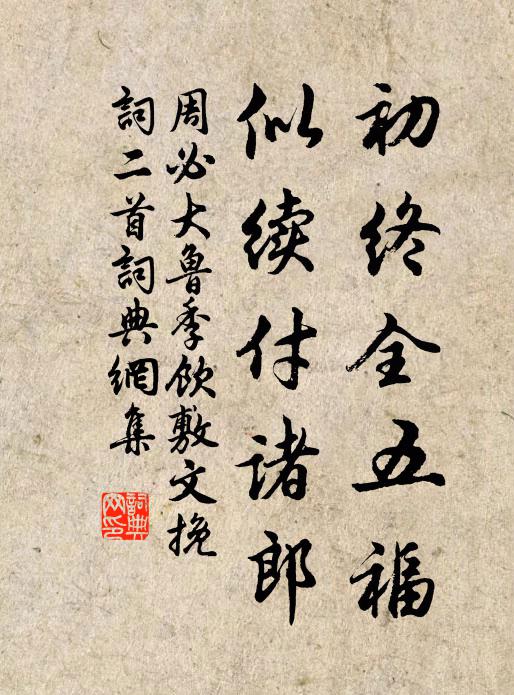 初终全五福
似续付诸郎
周必大鲁季钦敷文挽
词二首词典网集
词典网印